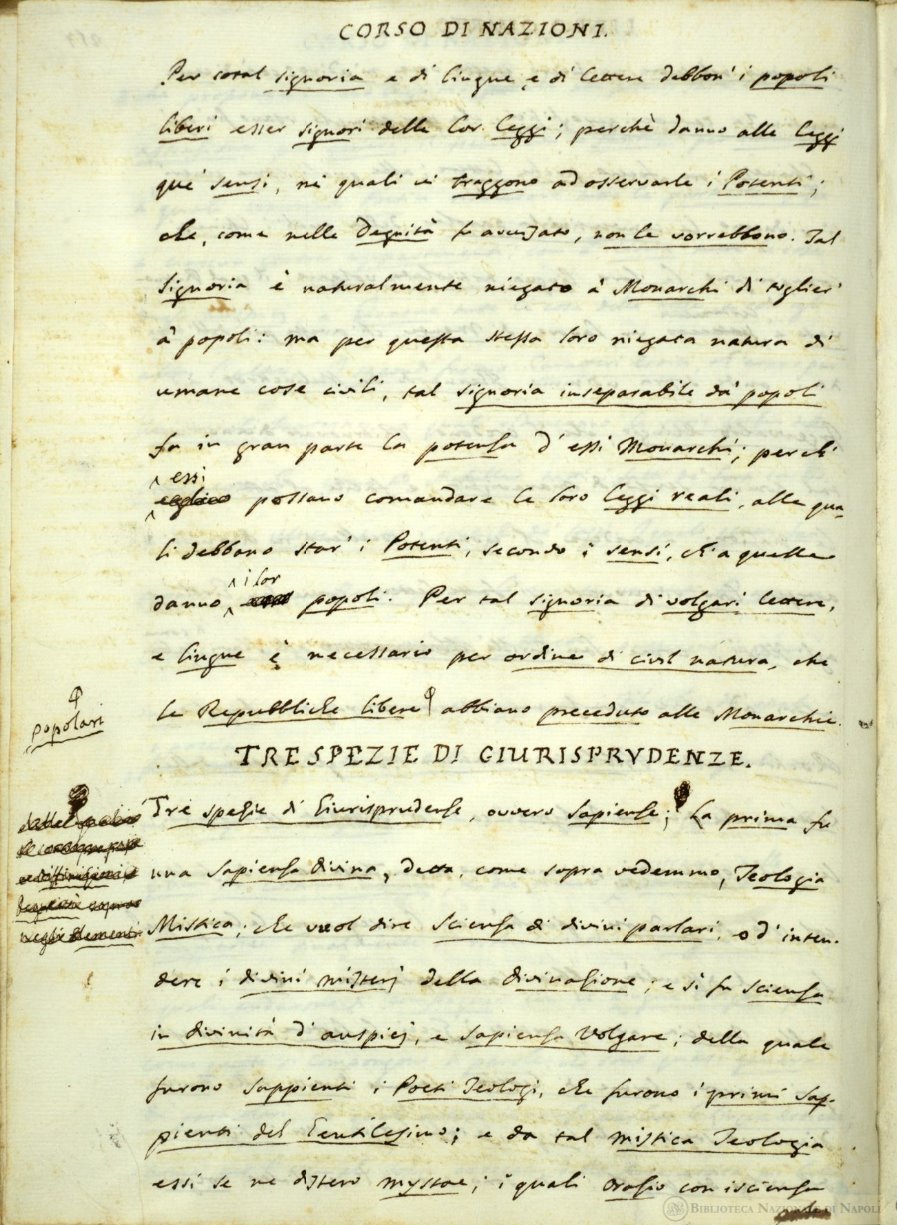 CORSO DI NAZIONI.
Per cotal signoria e di lingue, e di lettere debbon' i popoli
liberi esser signori delle lor leggi; perchè danno alle leggi
que' sensi, ne' quali vi traggono ad osservarle i Potenti;
che, come nelle Degnità fu avvisato, non le vorrebbono. Tal
Signoria è naturalmente niegato a' Monarchi di toglier'
a' popoli: ma per questa stessa loro niegata natura di
umane cose civili, tal signoria inseparabile da' popoli
fa in gran parte la potenza d' essi Monarchi; perch'
essi
possano comandare le loro leggi reali, alle qua-
li debbano star' i Potenti, secondo i sensi, ch' a quelle
i lor
danno popoli. Per tal signoria di volgari lettere,
e lingue è necessario per ordine di civil natura, che
le Repubbliche libere abbiano preceduto alle Monarchie.
popolari
TRE SPEZIE DI GIURISPRVDENZE.
Tre spezie di Giurisprudenze, ovvero Sapienze; La prima fu
una Sapienza divina, detta, come sopra vedemmo, Teologia
Mistica; che vuol dire Scienza di divini parlari, o d' inten-
dere i divini misterj della divinazione; e sì fu scienza
in divinità d' auspicj, e sapienza Volgare; della quale
furono sappienti i Poeti Teologi, che furono i primi sap-
pienti del Gentilesimo; e da tal mistica Teologia
essi se ne dissero mystae; i quali Orazio con iscienza
BIBLIOTECA NAZIONALE DI NAPOLI